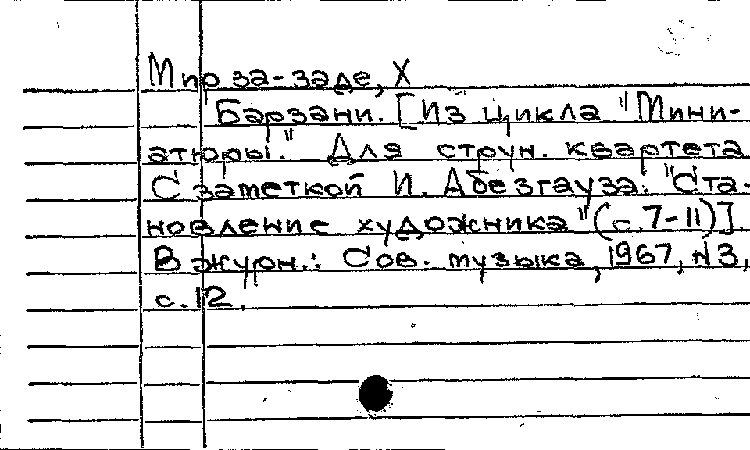 Мирза-заде, Х
Барзани. [Из цикла "Мини-
атюры." Для струн. квартета
С заметкой И. Абезгауза: "Ста-
новление художника" (с. 7-11)].
В журн.: Сов. музыка, 1967, №3,
с. 12.